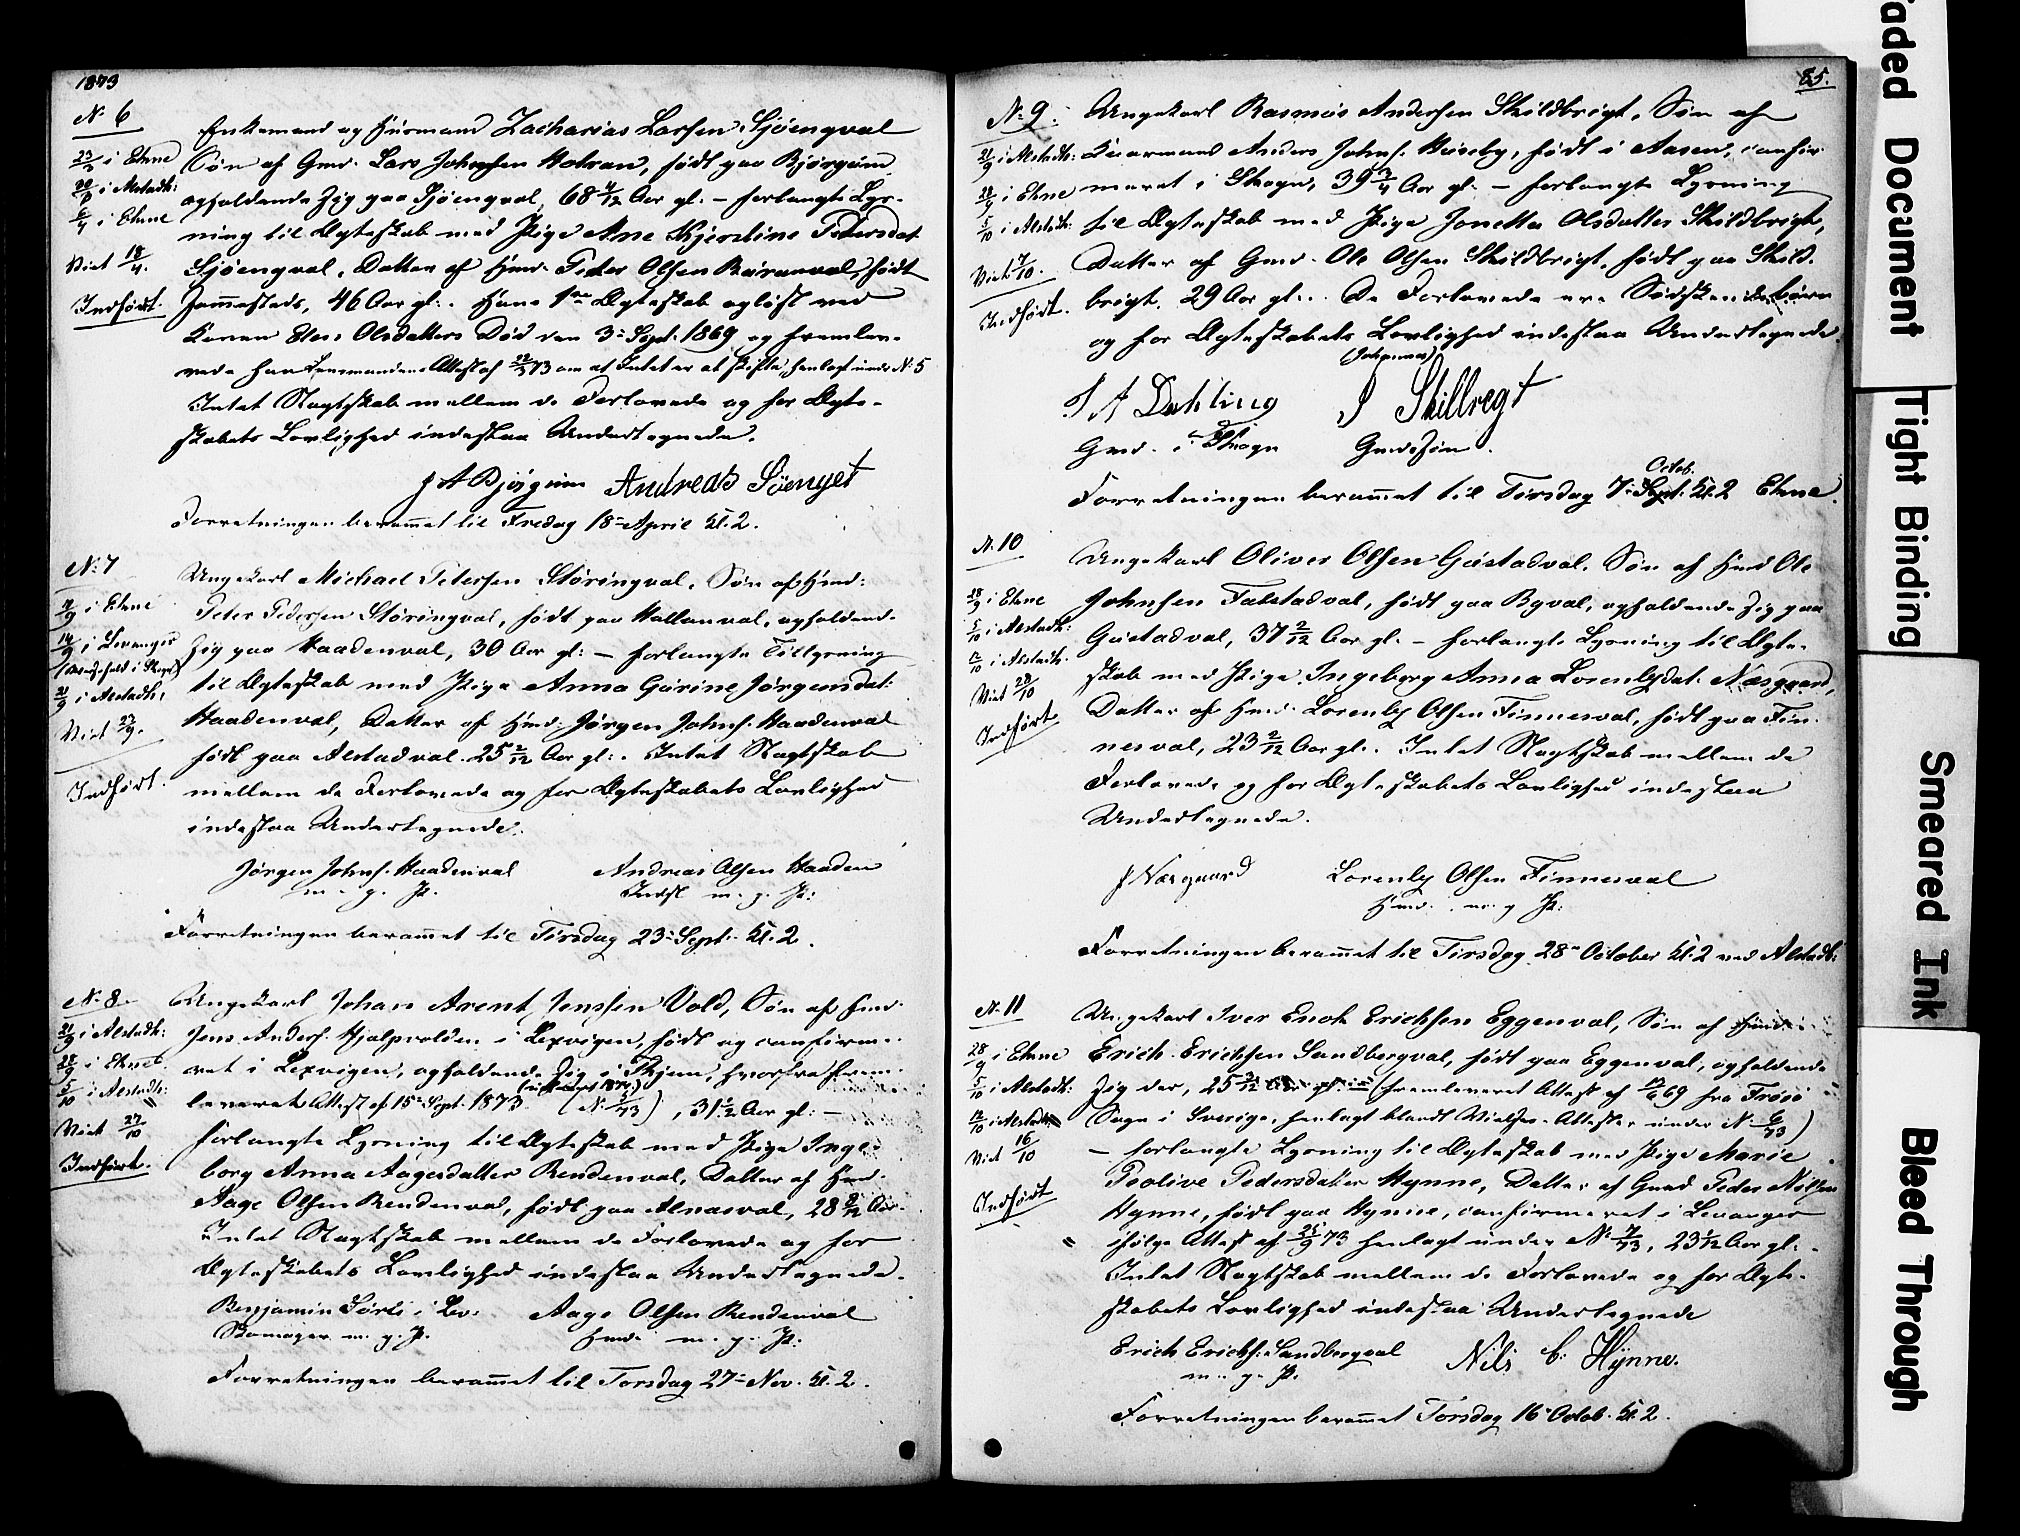 1873
N. 6
23/3 i Ekne
30/3 i Alstadh:
6/4 i Ekne
Viet 18/4.
Indført.
Enkemand og Huusmand Zacharias Larsen Sjøengval
Søn af Gmd. Lars Johnsen Holran, født paa Bjørguum
opholdende Zig paa Sjøengval, 68 4/12 Aar gl. – forlangte Lys-
ning til Ægteskab med Pige Ane Kjerstine Petersdat
Sjøengval, Datter af Hmd. Peter Olsen født
Jammesteds, 46 Aar gl:. Hans 1ste Ægteskab opløst ved
Konen Olsdatters Død den 3= Sept. 1869 og fremle-
verede han Lensmandens Attest af 73 om at Intet er at skifte, henlagt under N. 5
Intet Slagtskab mellem de Forlovede og for Ægte-
skabets Lovlighed indestaa Undertegnede.
J A Bjørguum Andreas Søenget
Forretningen berammet til Fredag 18= April Kl. 2.
N. 7
7/9 i Ekne
14/9 i Levanger
21/9 i Alstadh:
Viet 23/9.
Indført.
Ungekarl Michael Petersen Støringval, Søn af Hmd:
Peter Pedersen Støringval, født paa Hallanval, opholdend.
Zig paa Haadenval, 30 Aar gl: – forlangte Tillysning
til Ægteskab med Pige Anna Gurine Jørgensdat:
Haadenval, Datter af Hmd: Jørgen Johns. Haadenval
født paa Alstadval 25 2/12 Aar gl:. Intet Slagtskab
mellem de Forlovede og for Ægteskabets Lovlighed
indestaa Undertegnede.
Jørgen Johns. Haadenval Andreas Olsen Haaden
m. p. P. Indst m. p. P:
Forretningen berammet til Tirsdag 23= Sept. Kl. 2.
N. 8.
21/9 i Alstadh:
28/9 i Ekne
5/10 i Alstadh:
Viet 27/10
Indført.
Ungekarl Johan Arent Jenssen Vold, Søn af Hmd.
Jens Anders. Hjalpvolden i Lexvigen, født og confirme-
ret i Lexvigen, opholdende Zig i Thjem, hvorfra frem-
leveret Attest af 15= Sept. 1873 (N. 5/73), 31 Aar gl: –
forlangte Lysning til Ægteskab med Pige Inge-
borg Anna Aagesdatter Rendenval, Datter af Hmd.
Aage Olsen Rendenval, født paa Alnasval, 28 Aar.
Intet Slagtskab mellem de Forlovede og for
Ægteskabets Lovlighed indestaa Undertegnede.
Benjamin Sørli i Lev. Aage Olsen Rendenval
m. p. P. Hmd. m. p. P:
Forretningen berammet til Torsdag 27= Nov. Kl. 2.
85.
N. 9.
21/9 i Alstadh:
28/9 i Ekne
5/10 i Alstadh:
Viet 7/10.
Indført.
Ungekarl Rasmus Andersen Skildbrigt, Søn af
Anders Johns. Huseby, født i Aasen, confir-
meret i Skogn, 39 3/4 Aar gl. – forlangte Lysning
til Ægteskab med Pige Jonetta Olsdatter Skildbrigt,
Datter af Gmd. Ole Olsen Skildbrigt, født paa Skild-
brigt, 29 Aar gl:. De Forlovede ere Sødskendebørn
og for Ægteskabets Lovlighed indestaa Undertegnede.
(Johannes)
J A Dahling J Skillregt
Gmd. i Skogn Gmdssøn.
Octob.
Forretningen berammet til Tirsdag 7= Sept. Kl. 2 Ekne.
N. 10
28/9 i Ekne
5/10 i Alstadh:
12/10 i Alstadh.
Viet 28/10
Indført
Ungekarl Oliver Olsen Gustadval, Søn af Hmd Ole
Johnsen Falstadval, født paa Byval, opholdende Zig paa
Gustadval, 37 2/12 Aar gl. – forlangte Lysning til Ægte-
skab med Pige Ingeborg Anna Lorentsdat: Næsgaard,
Datter af Hmd. Lorents Olsen Finnesval, født paa Fin-
nesval, 23 2/12 Aar gl:. Intet Slagtskab mellem de
Forlovede og for Ægteskabets Lovlighed indestaa
Undertegnede.
J Næsgaard Lorents Olsen Finnesval
Hmd. m. p. P:
Forretningen berammet til Tirsdag 28= October Kl. 2 ved Alstadh:
N. 11
28/9 i Ekne
5/10 i Alstadh:
12/10 i Alstadh.
Viet 16/10
Indført
Ungekarl Iver Enok Erichsen Eggenval, Søn af Hmd.
Erich Erichsen Sandbergval, født paa Eggenval, opholdende
Zig der, 25 3/12 Aar gl: (fremleveret Attest af 69 fra Frøsö
Sogn i Sverige, henlagt blandt Vielses-Attester under N. 6/73)
– forlangte Lysning til Ægteskab med Pige Marie
Peolive Pedersdatter Hynne, Datter af Gmd Peder Nilsen
Hynne, født paa Hynne, confirmeret i Levanger
ifølge Attest af 25/9 73 henlagt under N. 7/73, 23 Aar gl:.
Intet Slagtskab mellem de Forlovede og for Ægte-
skabets Lovlighed indestaa Undertegnede
Erich Erichs. Sandbergval Nils C. Hynne.
m. p. P.
Forretningen berammet Torsdag 16= Octob. Kl. 2.
Faded Document
Tight Binding
Smeared Ink
Bleed Through